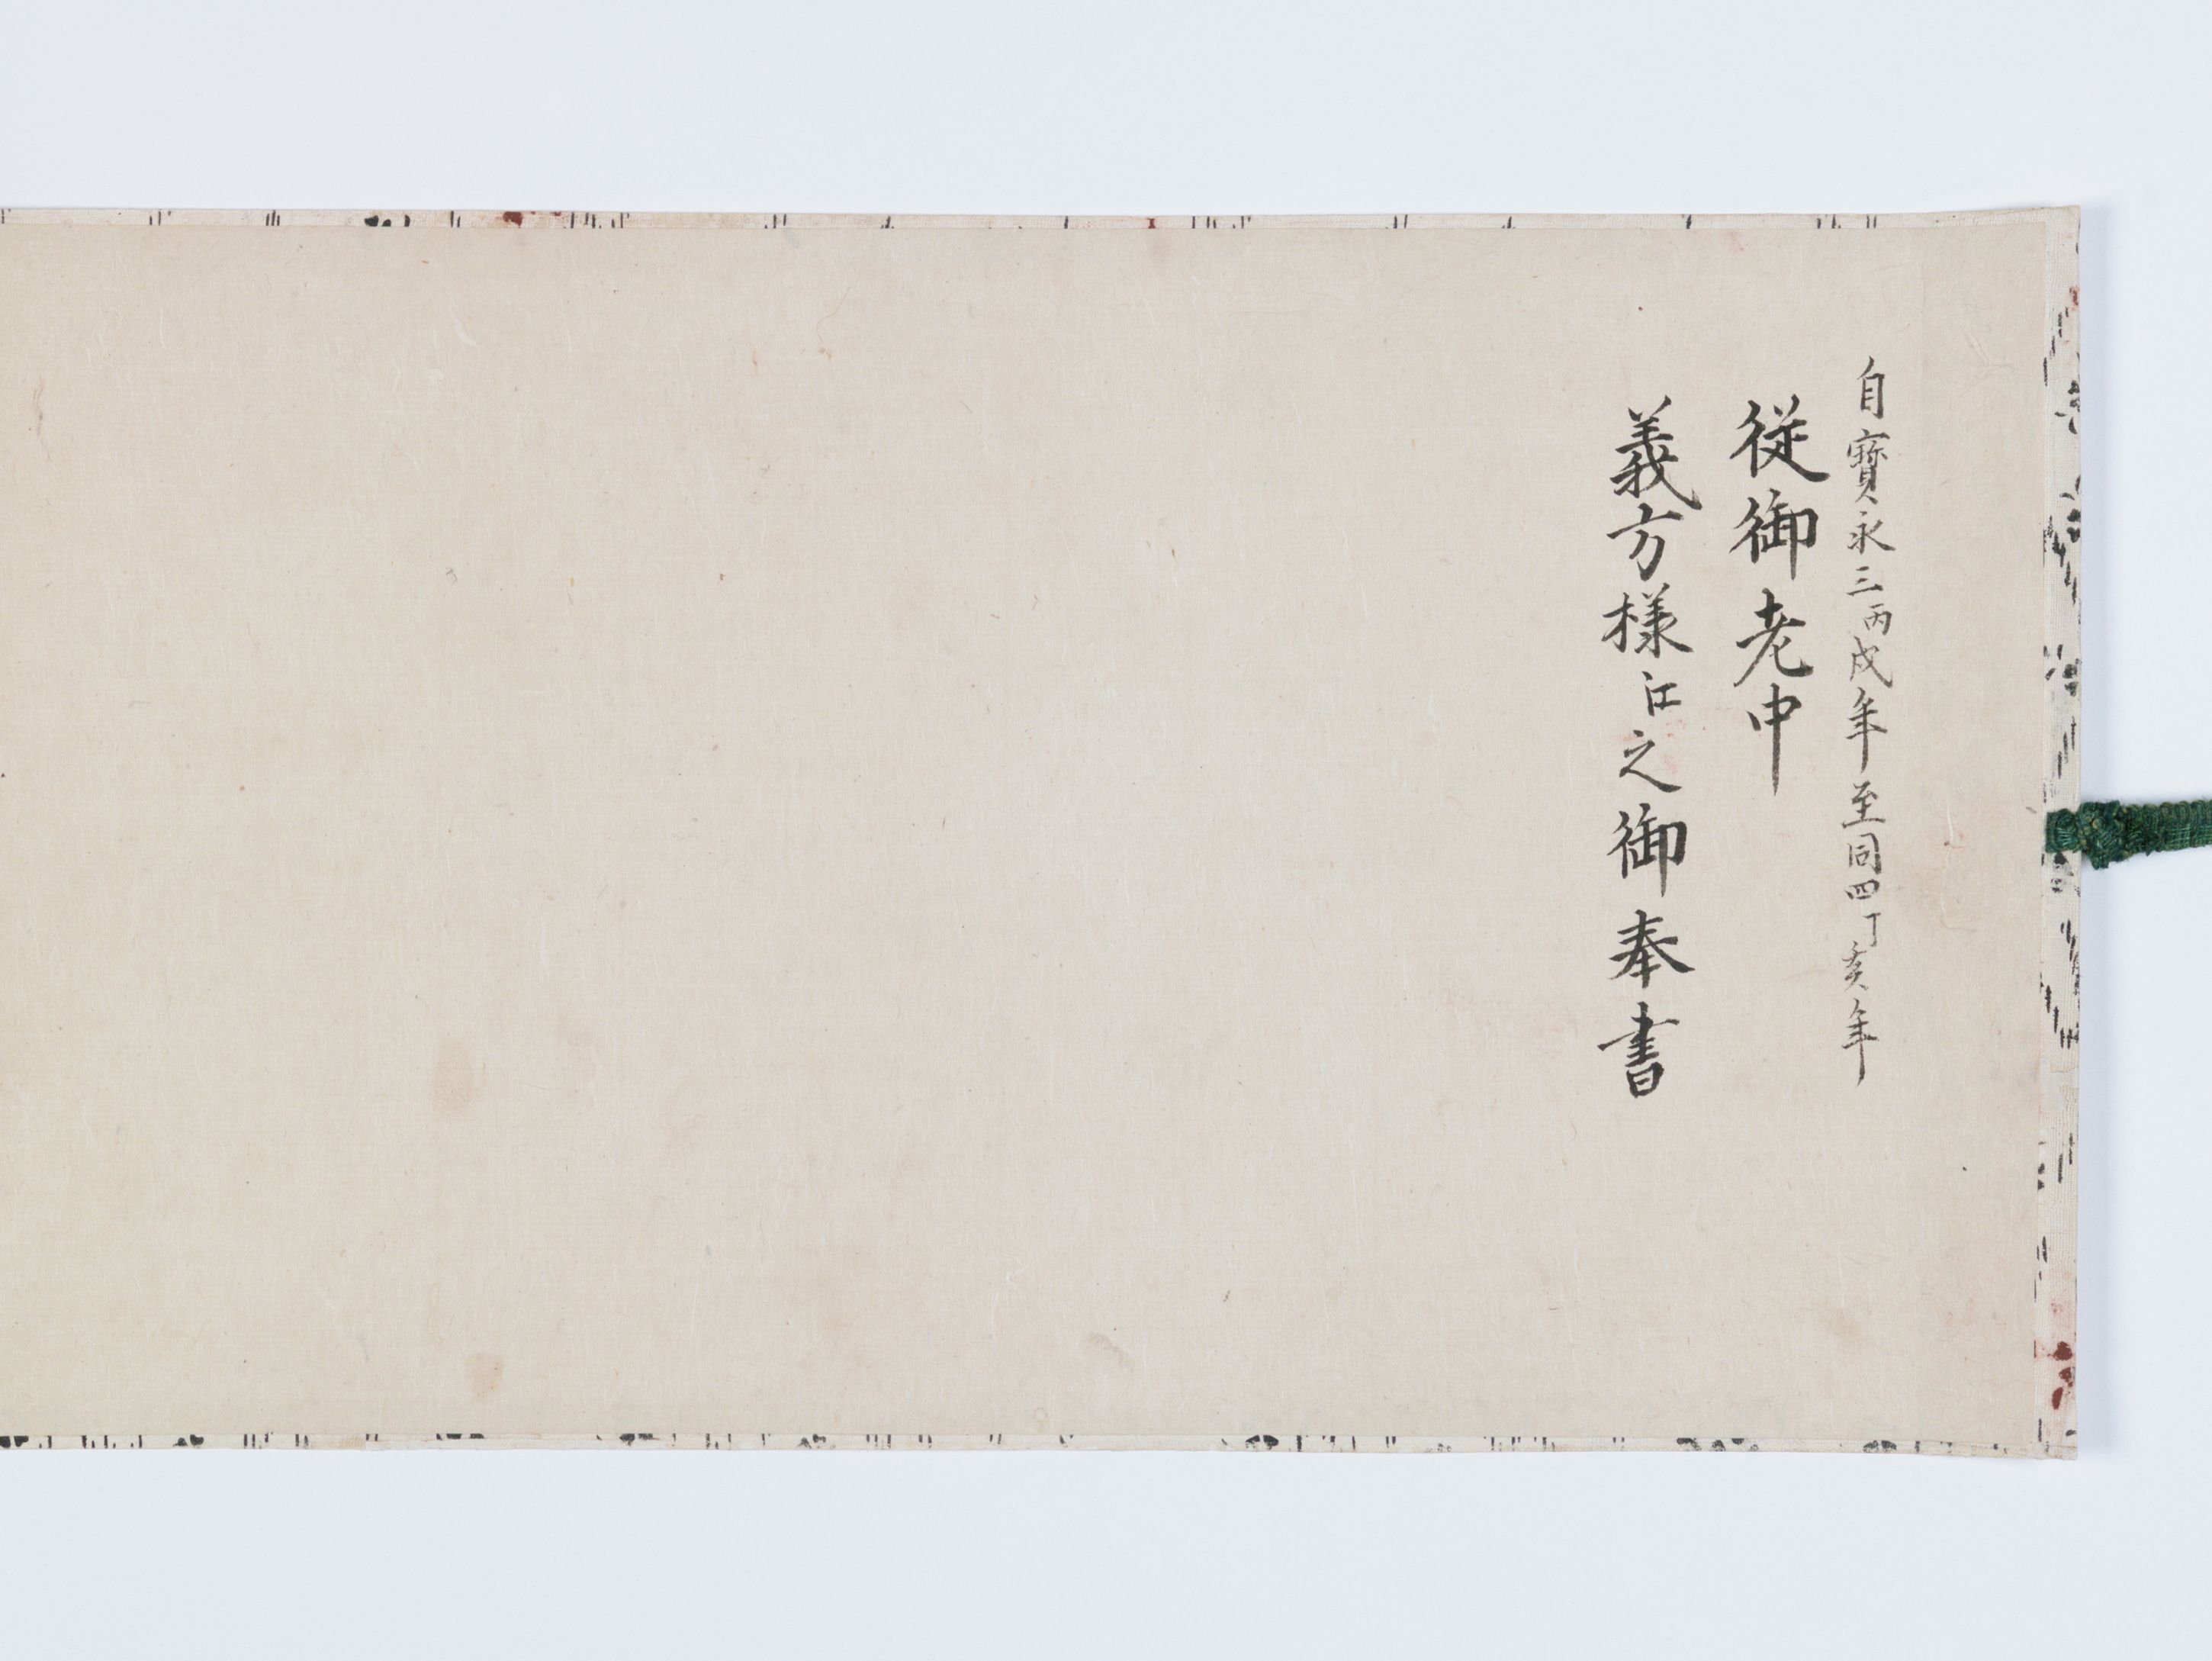 自寳永三丙戌年至同四丁亥年
従御老中
義方様江之御奉書